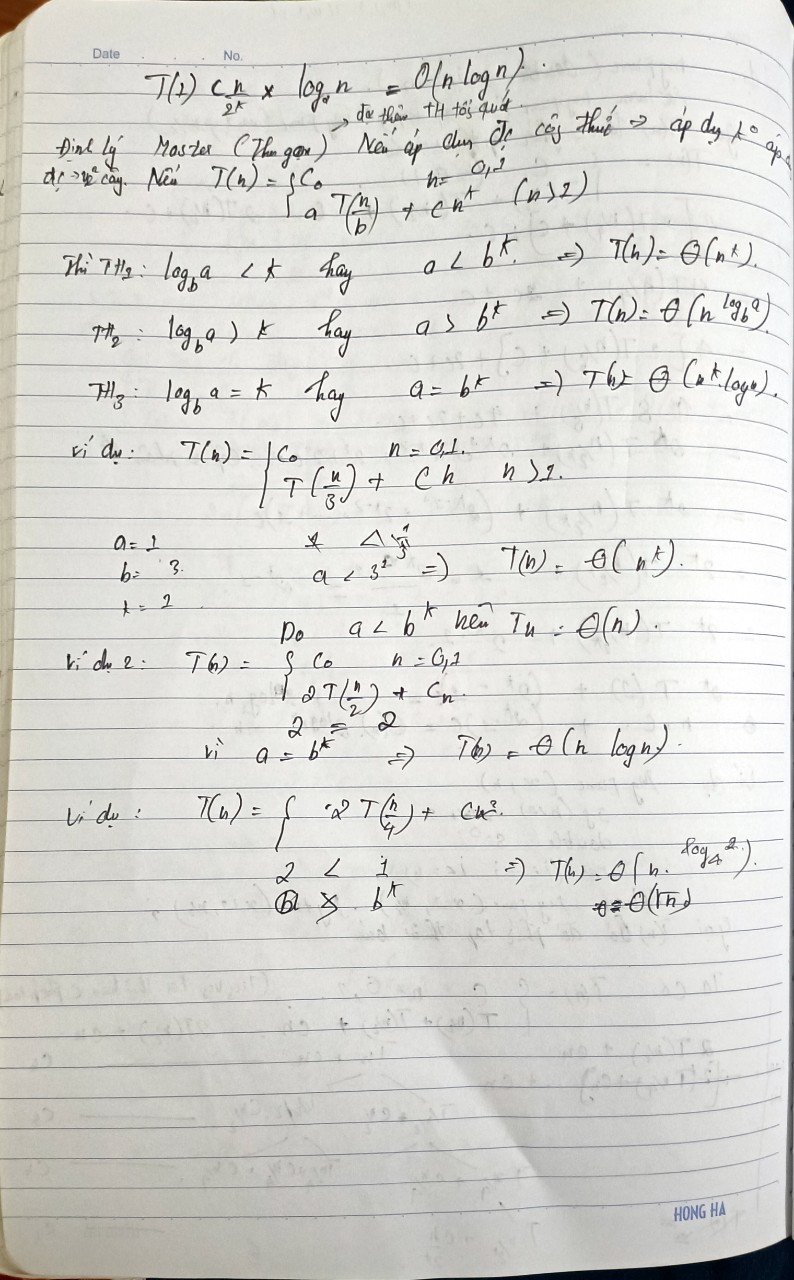 Date . . . No.
T(2) c n/2^k × log_2 n = O(n log n).
→ đa thức TH tổng quát
Định lý Master (Thu gọn) Nếu áp dụng đc công thức => áp dụng k° áp
đc → vẽ cây. Nếu T(n) = { C₀ n = 0,1
a T(n/b) + cn^k (n>1)
Thì TH₁: log_b a < k hay a < b^k. => T(n) = Θ(n^k).
TH₂: log_b a > k hay a > b^k => T(n) = Θ(n^{log_b a})
TH₃: log_b a = k hay a = b^k => T(n) = Θ(n^k.log n).
Ví dụ: T(n) = { C₀ n = 0,1.
T(n/3) + Cn n>1.
a = 1
b = 3. a < 3¹ => T(n) = Θ(n^k).
k = 1
Do a < b^k nên Tn = Θ(n).
Ví dụ 2: T(n) = { C₀ n = 0,1
2T(n/2) + Cn.
2 = 2
vì a = b^k => T(n) = Θ(n log n).
Ví dụ: T(n) = { 2 T(n/4) + C
2 < 1 => T(n) = Θ(n^{log_4 2}).
a > b^k = Θ(√n)
HONG HA